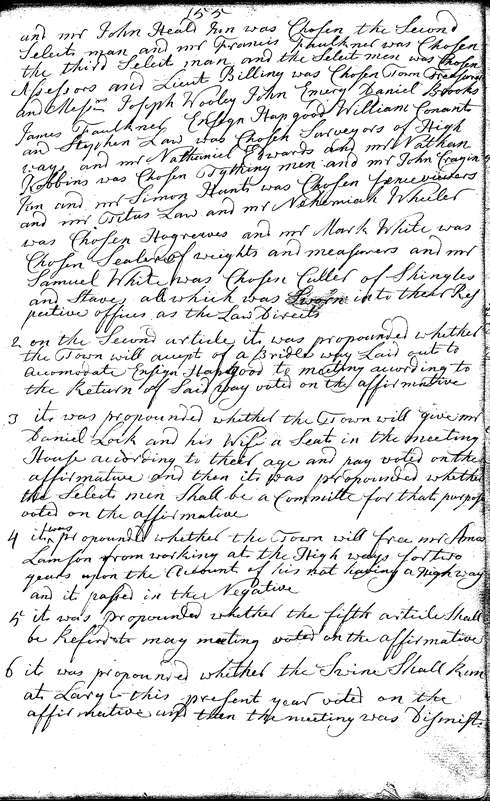 155
and mr John Heald Jun was Chosen the Second
Select man and mr Francis Faulkner was Chosen
the third Select man and the Select men was Chosen
Assessors and Lieut Billing was Chosen Town Treasurer
and Messrs Joseph Wooley John Emery Daniel Brooks
James Faulkner Ensign Hapgood William Conant
and Stephen Law was Chosen Surveyors of High
ways and mr Nathaniel Edwards and mr Nathan
Robbins was Chosen Tything men and mr John Cragin
Jun and mr Simon Hunt was Chosen fence viewers
and mr Titus Law and mr Nehemiah Wheeler
was Chosen Hogreeves and mr Mark White was
Chosen Sealer of weights and measurers and mr
Samuel White was Chosen Culler of Shingles
and Staves all which was Sworn into their Res
pective offices as the Law Directs
2 on the Second article it was propounded whether
the Town will accept of a Bridle way Laid out to
acomodate Ensign Hapgood to meeting acording to
the Return of Said way voted on the affirmative
3 it was propounded whether the Town will give mr
Daniel Lock and his Wife a Seat in the meeting
House according to their age and pay voted on the
affirmative and then it was propounded whether
the Select men Shall be a Committe for that purpose
voted on the affirmative
4 it was propounded whether the Town will free mr Amos
Lamson from working at the High ways for two
years upon the Account of his not having a High way
and it passed in the Negative
5 it was propounded whether the fifth article Shall
be Referd to may meeting voted on the affirmative
6 it was propounded whether the Swine Shall Run
at Large this present year voted on the
affirmative and then the meeting was Dismist